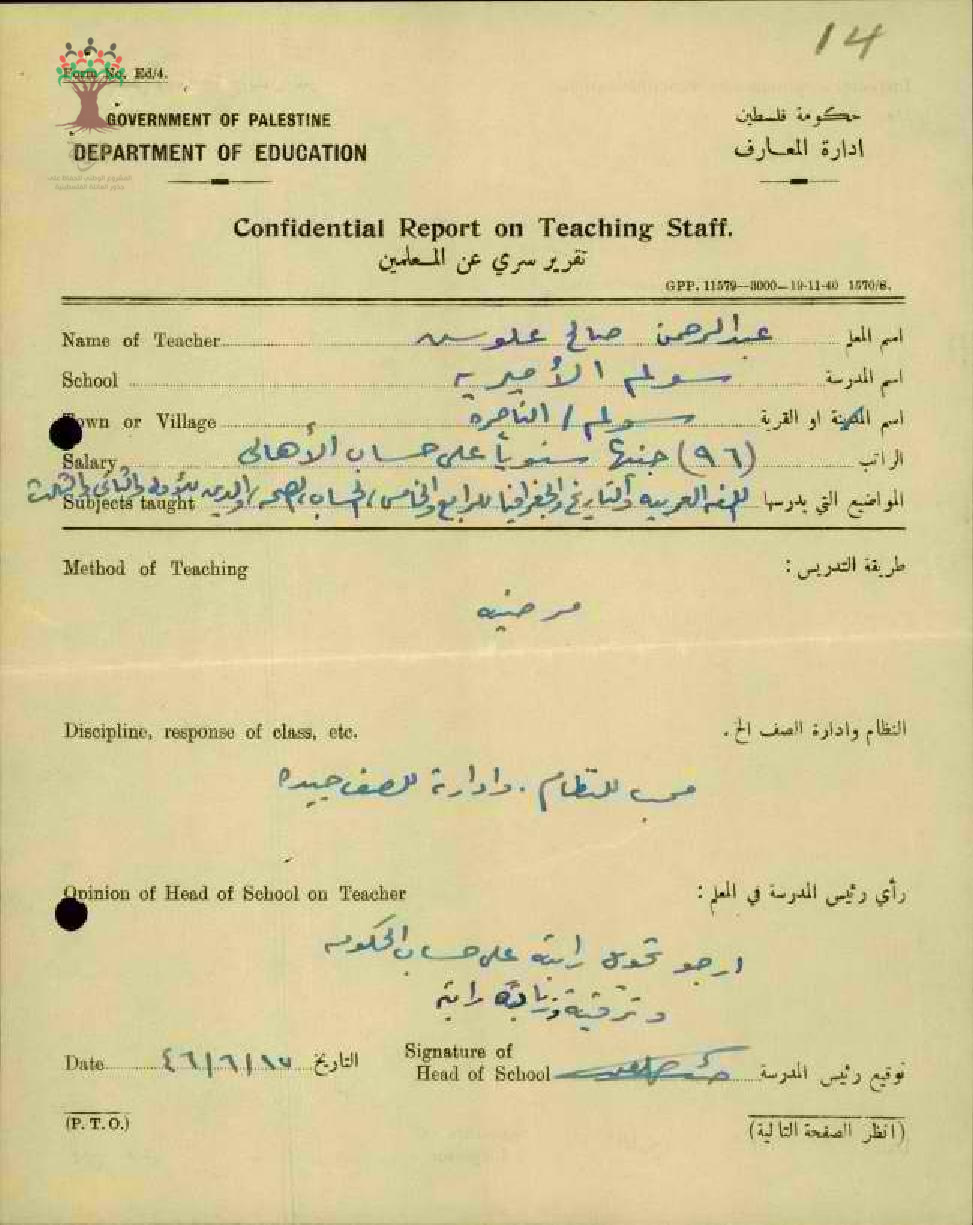 14
Form No. Ed/4.
GOVERNMENT OF PALESTINE
حكومة فلسطين
DEPARTMENT OF EDUCATION
ادارة المعارف
المشروع الوطني للحفاظ على
جذور العائلة الفلسطينية
Confidential Report on Teaching Staff.
تقرير سري عن المعلمين
GPP. 11579—3000—19-11-40 1570/8.
Name of Teacher عبدالرحمن صالح علوس اسم المعلم
School سولم الأميرية اسم المدرسة
Town or Village سولم / الناصرة اسم المدينة او القرية
Salary (٩٦) جنيها سنوياً على حساب الأهالي الراتب
Subjects taught اللغه العربيه والتاريخ والجغرافيا للرابع والخامس، الحساب، الصحه، والدين للأول والثاني والثالث المواضيع التي يدرسها
Method of Teaching
طريقة التدريس :
مرضيه
Discipline, response of class, etc.
النظام وادارة الصف الخ .
محب للنظام . وادارة للصف جيده
Opinion of Head of School on Teacher
رأي رئيس المدرسة في المعلم :
ارجو تحويل راتبه على حساب الحكومه
وترقيته وزيادة راتبه
Date ٤٦/٦/١٧ التاريخ
Signature of
Head of School توقيع رئيس المدرسة
(P. T. O.)
(انظر الصفحة التالية)